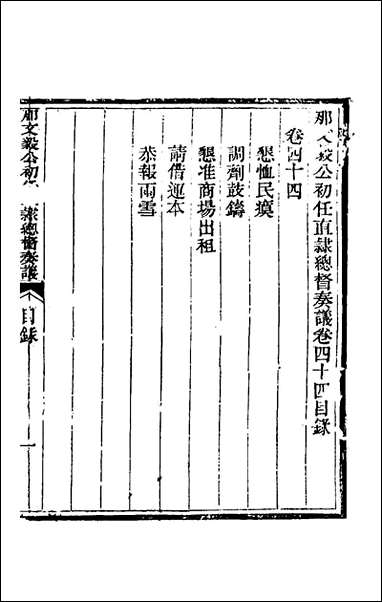 那文毅公初任直隸總督奏議卷四十四目錄
卷四十四
懇恤民瘼
調劑鼓鑄
懇准商場出租
請借運本
恭報雨雪
那文毅公初任直隸總督奏議 目錄 一